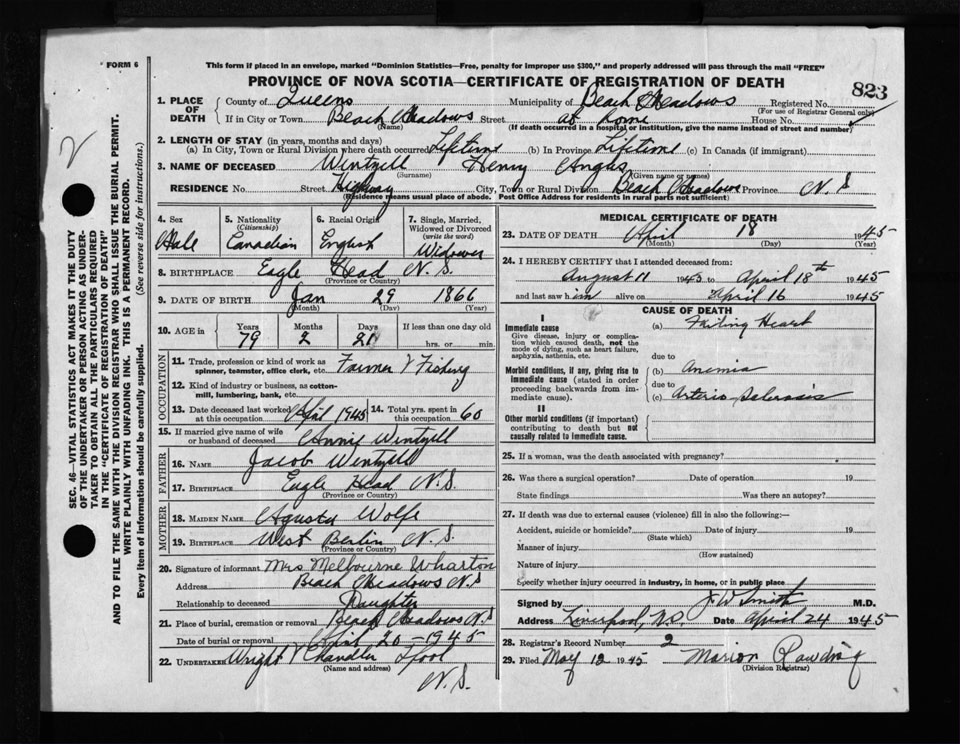 FORM 6
This form if placed in an envelope, marked "Dominion Statistics—Free, penalty for improper use $300," and properly addressed will pass through the mail "FREE"
PROVINCE OF NOVA SCOTIA—CERTIFICATE OF REGISTRATION OF DEATH
823
1. PLACE OF DEATH
County of Queens Municipality of Beach Meadows Registered No.
(For use of Registrar General only)
If in City or Town Beach Meadows Street at home House No.
(Name) (If death occurred in a hospital or institution, give the name instead of street and number)
2. LENGTH OF STAY (in years, months and days)
(a) In City, Town or Rural Division where death occurred Lifetime (b) In Province Lifetime (c) In Canada (if immigrant)
3. NAME OF DECEASED Wintzell Henry Angus
(Surname) (Given name or names)
RESIDENCE No. Street Highway City, Town or Rural Division Beach Meadows Province N.S
(Residence means usual place of abode. Post Office Address for residents in rural parts not sufficient)
SEC. 46—VITAL STATISTICS ACT MAKES IT THE DUTY
OF THE UNDERTAKER OR PERSON ACTING AS UNDER-
TAKER TO OBTAIN ALL THE PARTICULARS REQUIRED
IN THE "CERTIFICATE OF REGISTRATION OF DEATH"
AND TO FILE THE SAME WITH THE DIVISION REGISTRAR WHO SHALL ISSUE THE BURIAL PERMIT.
WRITE PLAINLY WITH UNFADING INK. THIS IS A PERMANENT RECORD.
Every item of information should be carefully supplied. (See reverse side for instructions.)
4. Sex
Male
5. Nationality
(Citizenship)
Canadian
6. Racial Origin
English
7. Single, Married,
Widowed or Divorced
(write the word)
Widower
8. BIRTHPLACE Eagle Head N.S.
(Province or Country)
9. DATE OF BIRTH Jan 29 1866
(Month) (Day) (Year)
10. AGE in
Years Months Days If less than one day old
79 2 21 hrs. or min.
OCCUPATION
11. Trade, profession or kind of work as
spinner, teamster, office clerk, etc. Farmer & Fishing
12. Kind of industry or business, as cotton-
mill, lumbering, bank, etc.
13. Date deceased last worked
at this occupation April 1945
14. Total yrs. spent in
this occupation 60
15. If married give name of wife
or husband of deceased Annie Wintzell
FATHER
16. NAME Jacob Wintzell
17. BIRTHPLACE Eagle Head N.S.
(Province or Country)
MOTHER
18. MAIDEN NAME Agusta Wolfe
19. BIRTHPLACE West Berlin N.S.
(Province or Country)
20. Signature of informant Mrs Melbourne Wharton
Address Beach Meadows N.S
Relationship to deceased Daughter
21. Place of burial, cremation or removal Beach Meadows N.S
Date of burial or removal April 20 — 1945
22. UNDERTAKER Wright & Chandler Lpool
(Name and address)
N.S.
MEDICAL CERTIFICATE OF DEATH
23. DATE OF DEATH April 18 1945
(Month) (Day) (Year)
24. I HEREBY CERTIFY that I attended deceased from:
August 11 1943 to April 18th 1945
and last saw him alive on April 16 1945
CAUSE OF DEATH
I
Immediate cause
Give disease, injury or complica-
tion which caused death, not the
mode of dying, such as heart failure,
asphyxia, asthenia, etc.
(a) Failing Heart
due to
Morbid conditions, if any, giving rise to
immediate cause (stated in order
proceeding backwards from im-
mediate cause).
(b) Anemia
due to
(c) Arterio Sclerosis
II
Other morbid conditions (if important)
contributing to death but not
causally related to immediate cause.
25. If a woman, was the death associated with pregnancy?
26. Was there a surgical operation? Date of operation 19
State findings Was there an autopsy?
27. If death was due to external causes (violence) fill in also the following:—
Accident, suicide or homicide? Date of injury 19
(State which)
Manner of injury
(How sustained)
Nature of injury
Specify whether injury occurred in industry, in home, or in public place
Signed by J W Smith M.D.
Address Liverpool, N.S. Date April 24 1945
28. Registrar's Record Number 2
29. Filed May 12 1945 Marion Rawding
(Division Registrar)